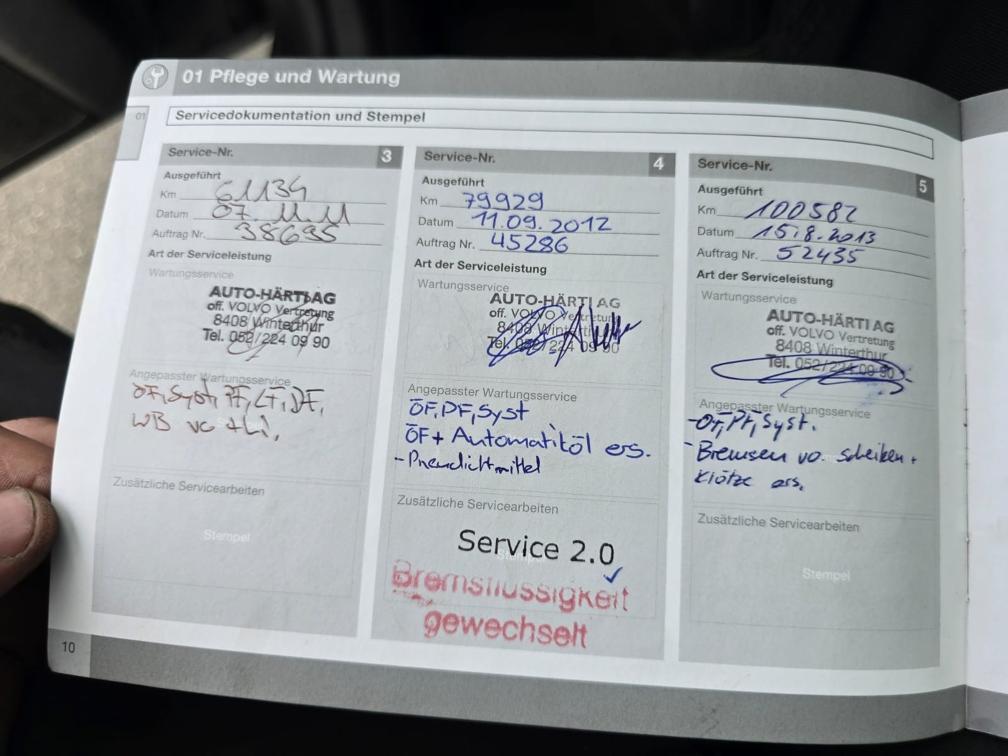 01 Pflege und Wartung
01
Servicedokumentation und Stempel
Service-Nr. 3
Ausgeführt
Km 61134
Datum 07.11.11
Auftrag Nr. 38695
Art der Serviceleistung
Wartungsservice
AUTO-HÄRTI AG
off. VOLVO Vertretung
8408 Winterthur
Tel. 052/224 09 90
Angepasster Wartungsservice
ÖF, Syst, PF, LF, DF,
WB vo + hi,
Zusätzliche Servicearbeiten
Stempel
Service-Nr. 4
Ausgeführt
Km 79929
Datum 11.09.2012
Auftrag Nr. 45286
Art der Serviceleistung
Wartungsservice
AUTO-HÄRTI AG
off. VOLVO Vertretung
8408 Winterthur
Tel. 052/224 09 90
Angepasster Wartungsservice
ÖF, PF, Syst
ÖF + Automatiköl ers.
- Pneudichtmittel
Zusätzliche Servicearbeiten
Stempel
Service 2.0
Bremsflüssigkeit
gewechselt
Service-Nr. 5
Ausgeführt
Km 100582
Datum 15.8.2013
Auftrag Nr. 52435
Art der Serviceleistung
Wartungsservice
AUTO-HÄRTI AG
off. VOLVO Vertretung
8408 Winterthur
Tel. 052/224 09 90
Angepasster Wartungsservice
- ÖF, PF, Syst.
- Bremsen vo. scheiben +
Klötze ers.
Zusätzliche Servicearbeiten
Stempel
10